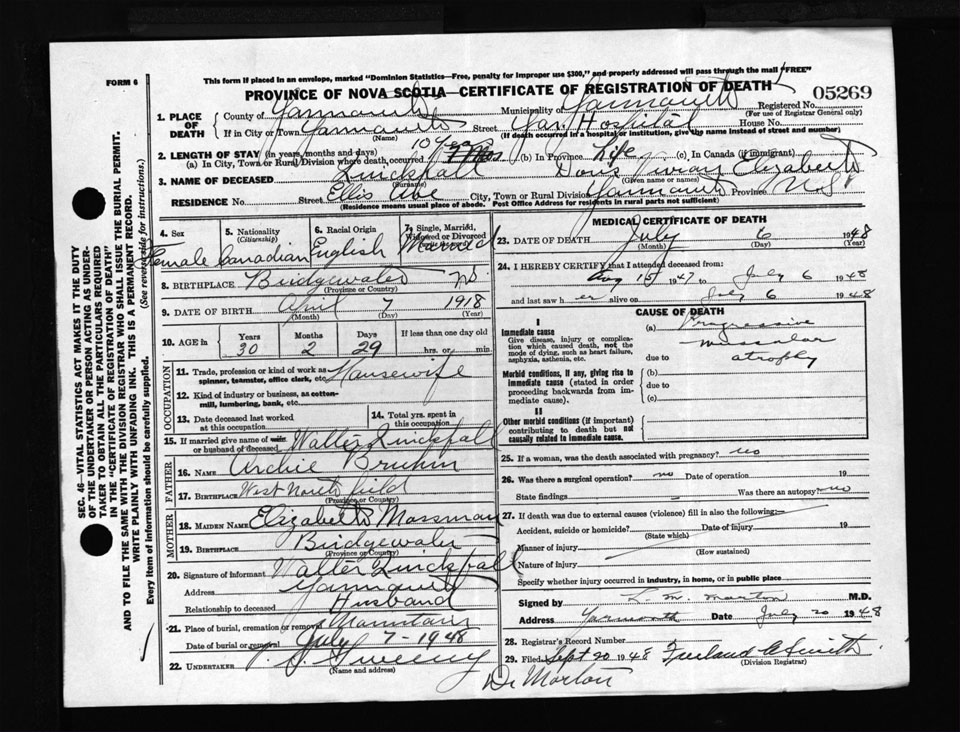 FORM 6
This form if placed in an envelope, marked "Dominion Statistics—Free, penalty for improper use $300," and properly addressed will pass through the mail "FREE"
PROVINCE OF NOVA SCOTIA—CERTIFICATE OF REGISTRATION OF DEATH
05269
Registered No.
(For use of Registrar General only)
1. PLACE OF DEATH
County of Yarmouth Municipality of Yarmouth
If in City or Town Yarmouth Street Yar. Hospital House No.
(If death occurred in a hospital or institution, give the name instead of street and number)
2. LENGTH OF STAY (in years, months and days)
(a) In City, Town or Rural Division where death occurred 10 yrs (b) In Province Life (c) In Canada (if immigrant)
3. NAME OF DECEASED Quickfall Doris Elizabeth
(Surname) (Given name or names)
RESIDENCE No. Street Ellis Ave City, Town or Rural Division Yarmouth Province N.S.
(Residence means usual place of abode. Post Office Address for residents in rural parts not sufficient)
4. Sex Female
5. Nationality (Citizenship) Canadian
6. Racial Origin English
7. Single, Married, Widowed or Divorced Married
8. BIRTHPLACE Bridgewater N.S.
(Province or Country)
9. DATE OF BIRTH April 7 1918
(Month) (Day) (Year)
10. AGE in Years Months Days If less than one day old
30 2 29 hrs. or min.
OCCUPATION
11. Trade, profession or kind of work as spinner, teamster, office clerk, etc. Housewife
12. Kind of industry or business, as cotton-mill, lumbering, bank, etc.
13. Date deceased last worked at this occupation
14. Total yrs. spent in this occupation
15. If married give name of wife or husband of deceased Walter Quickfall
FATHER
16. NAME Archie Bruhm
17. BIRTHPLACE West Northfield
(Province or Country)
MOTHER
18. MAIDEN NAME Elizabeth Mossman
19. BIRTHPLACE Bridgewater
(Province or Country)
20. Signature of informant Walter Quickfall
Address Yarmouth
Relationship to deceased Husband
21. Place of burial, cremation or removal
Date of burial or removal July 7-1948
22. UNDERTAKER Sweeny
(Name and address)
MEDICAL CERTIFICATE OF DEATH
23. DATE OF DEATH July 6 1948
(Month) (Day) (Year)
24. I HEREBY CERTIFY that I attended deceased from
Aug 15 1947 to July 6 1948
and last saw h er alive on July 6 1948
CAUSE OF DEATH
I
Immediate cause
Give disease, injury or complication which caused death, not the mode of dying, such as heart failure, asphyxia, asthenia, etc.
(a) Progressive muscular atrophy
due to
Morbid conditions, if any, giving rise to immediate cause (stated in order proceeding backwards from immediate cause).
(b)
due to
(c)
II
Other morbid conditions (if important) contributing to death but not causally related to immediate cause.
25. If a woman, was the death associated with pregnancy? no
26. Was there a surgical operation? no Date of operation 19
State findings Was there an autopsy? no
27. If death was due to external causes (violence) fill in also the following:—
Accident, suicide or homicide? Date of injury 19
(State which)
Manner of injury
(How sustained)
Nature of injury
Specify whether injury occurred in industry, in home, or in public place
Signed by L. M. Morton M.D.
Address Yarmouth Date July 20 1948
28. Registrar's Record Number
29. Filed Sept 20 1948 Smith
(Division Registrar)
Dr Morton
SEC. 46—VITAL STATISTICS ACT MAKES IT THE DUTY
OF THE UNDERTAKER OR PERSON ACTING AS UNDER-
TAKER TO OBTAIN ALL THE PARTICULARS REQUIRED
IN THE "CERTIFICATE OF REGISTRATION OF DEATH"
AND TO FILE THE SAME WITH THE DIVISION REGISTRAR WHO SHALL ISSUE THE BURIAL PERMIT.
WRITE PLAINLY WITH UNFADING INK. THIS IS A PERMANENT RECORD.
Every item of information should be carefully supplied. (See reverse side for instructions.)